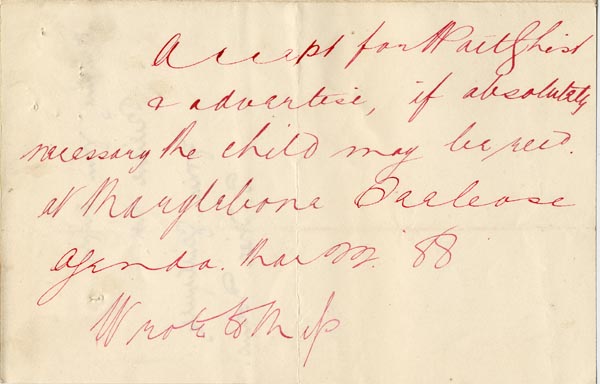 Accept for Wait List
& advertise, if absolutely
necessary the child may be recd.
at Marylebone
agenda. 88
Wrote to